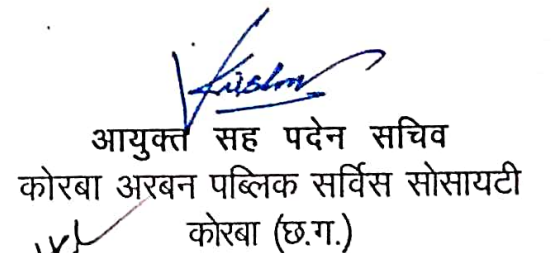 आयुक्त सह पदेन सचिव
कोरबा अरबन पब्लिक सर्विस सोसायटी
कोरबा (छ.ग.)